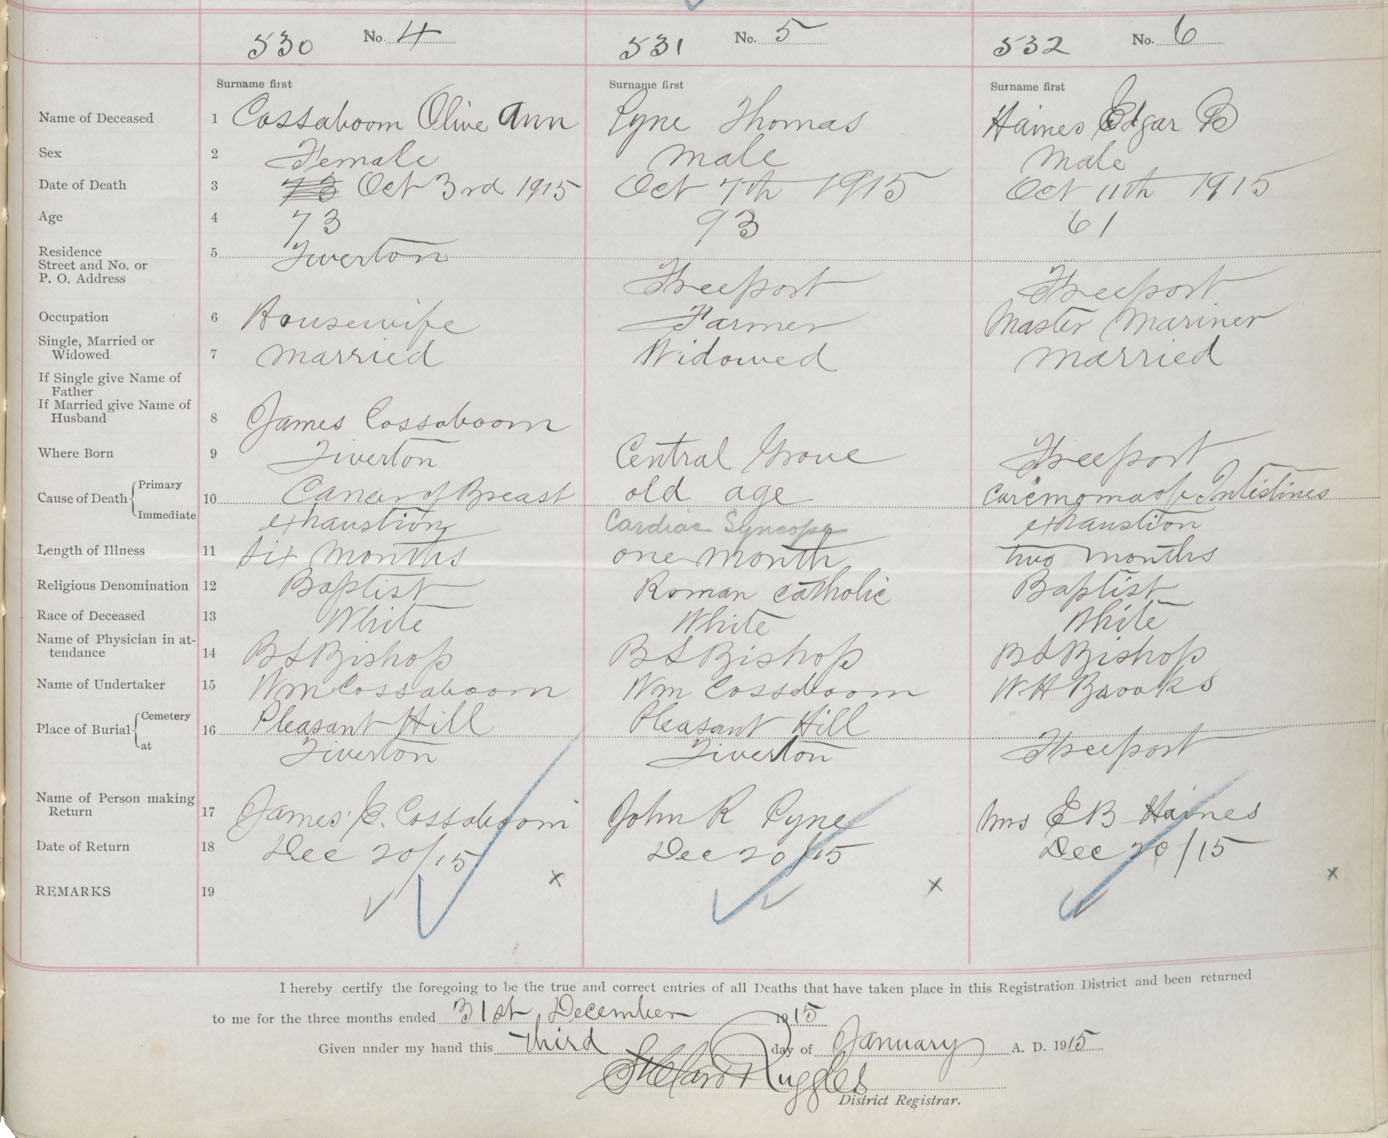 530 No. 4 531 No. 5 532 No. 6
Surname first Surname first Surname first
Name of Deceased 1 Cossaboom Olive Ann Pyne Thomas Haines Edgar B
Sex 2 Female Male Male
Date of Death 3 73 Oct 3rd 1915 Oct 7th 1915 Oct 11th 1915
Age 4 73 93 61
Residence 5 Tiverton
Street and No. or
P. O. Address Freeport Freeport
Occupation 6 Housewife Farmer Master Mariner
Single, Married or
Widowed 7 Married Widowed Married
If Single give Name of
Father
If Married give Name of
Husband 8 James Cossaboom
Where Born 9 Tiverton Central Grove Freeport
Cause of Death Primary 10 Cancer of Breast old age Carcinoma of Intistines
Immediate exhaustion Cardiac Syncope exhaustion
Length of Illness 11 Six Months one month two months
Religious Denomination 12 Baptist Roman Catholic Baptist
Race of Deceased 13 White White White
Name of Physician in at-
tendance 14 B S Bishop B S Bishop B S Bishop
Name of Undertaker 15 Wm Cossaboom Wm Cossaboom W H Brooks
Place of Burial Cemetery 16 Pleasant Hill Pleasant Hill
at Tiverton Tiverton Freeport
Name of Person making
Return 17 James E. Cossaboom John R Pyne Mrs E B Haines
Date of Return 18 Dec 20/15 Dec 20/15 Dec 20/15
REMARKS 19 x x x
I hereby certify the foregoing to be the true and correct entries of all Deaths that have taken place in this Registration District and been returned
to me for the three months ended 31st December 1915
Given under my hand this third day of January A. D. 1915
Ruggles
District Registrar.